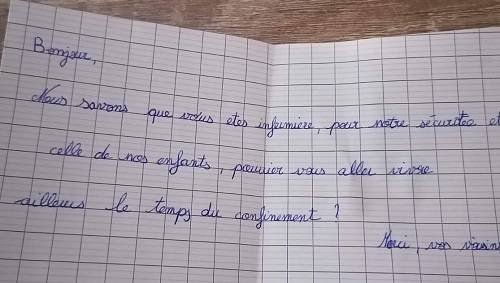 Bonjour,
Nous savons que vous etes infirmière, pour notre sécuritée et
celle de nos enfants, pourriez vous aller vivre
ailleurs le temps du confinement ?
Merci, vos voisins